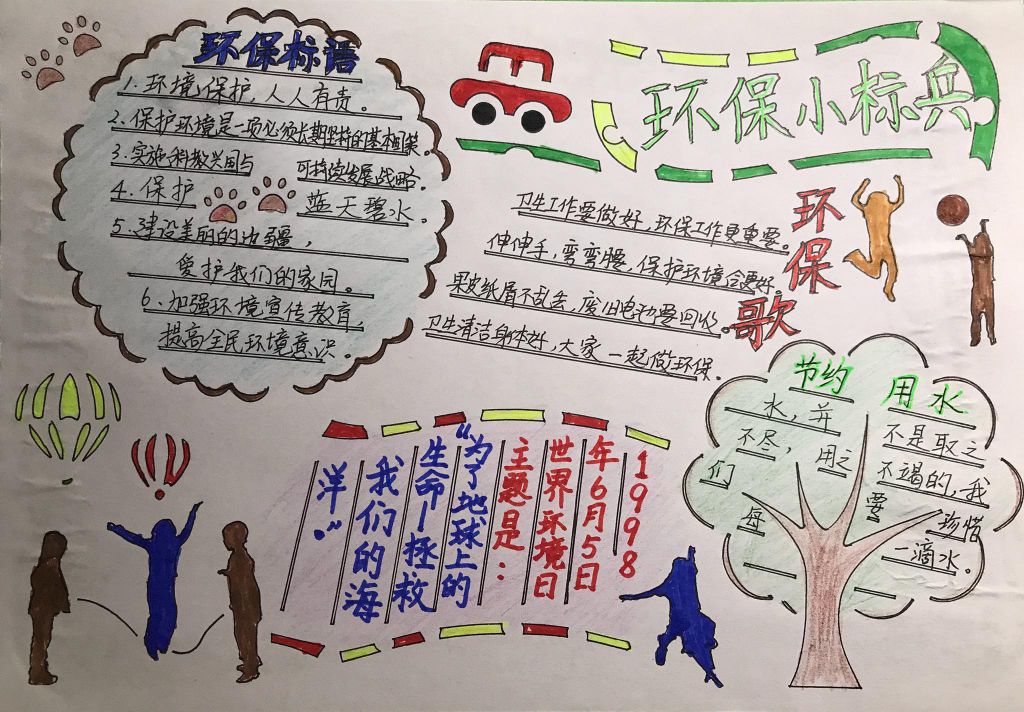 环保标语
1、环境保护，人人有责。
2、保护环境是一项必须长期坚持的基本国策。
3、实施科教兴国与 可持续发展战略。
4、保护 蓝天碧水。
5、建设美丽的边疆，
爱护我们的家园。
6、加强环境宣传教育，
提高全民环境意识。
环保小标兵
环保歌
卫生工作要做好，环保工作更重要。
伸伸手，弯弯腰，保护环境会更好。
果皮纸屑不乱丢，废旧电池要回收。
卫生清洁身体好，大家一起做环保。
1998
年6月5日
世界环境日
主题是：
“为了地球上的
生命—拯救
我们的海
洋”
节约 用水
水，并 不是取之
不尽，用之 不竭的，我
们 要 珍惜
每 一滴水。